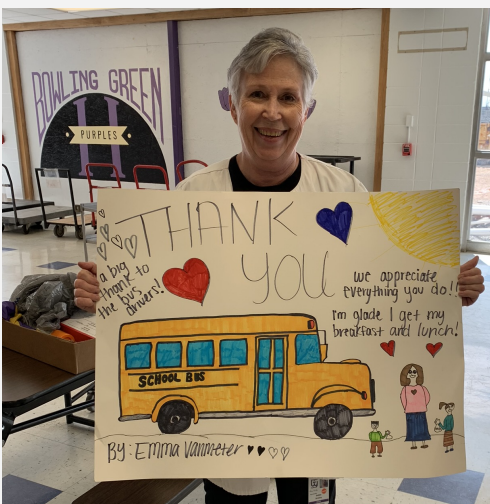 BOWLING GREEN
PURPLES
THANK
YOU
a big
thank to
the bus
drivers!
we appreciate
everything you do!!
i'm glade I get my
breakfast and lunch!
SCHOOL BUS
BY: Emma Vanmeter